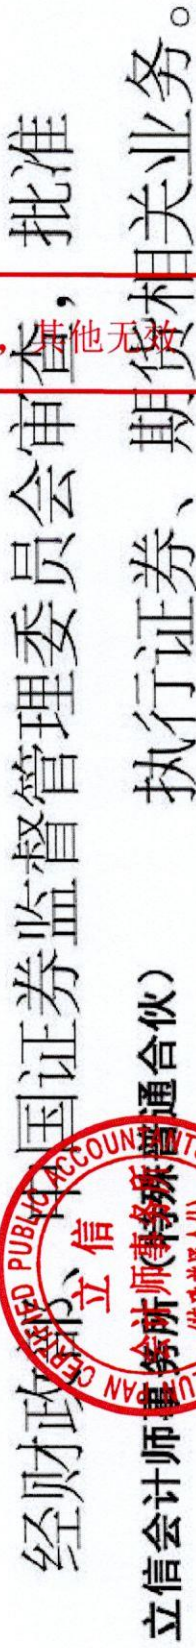 经财政部、中国证券监督管理委员会审查,批准
立信会计师事务所(特殊普通合伙) 执行证券、期货相关业务。
,其他无效
CERTIFIED PUBLIC ACCOUN
立信
会计师事务所